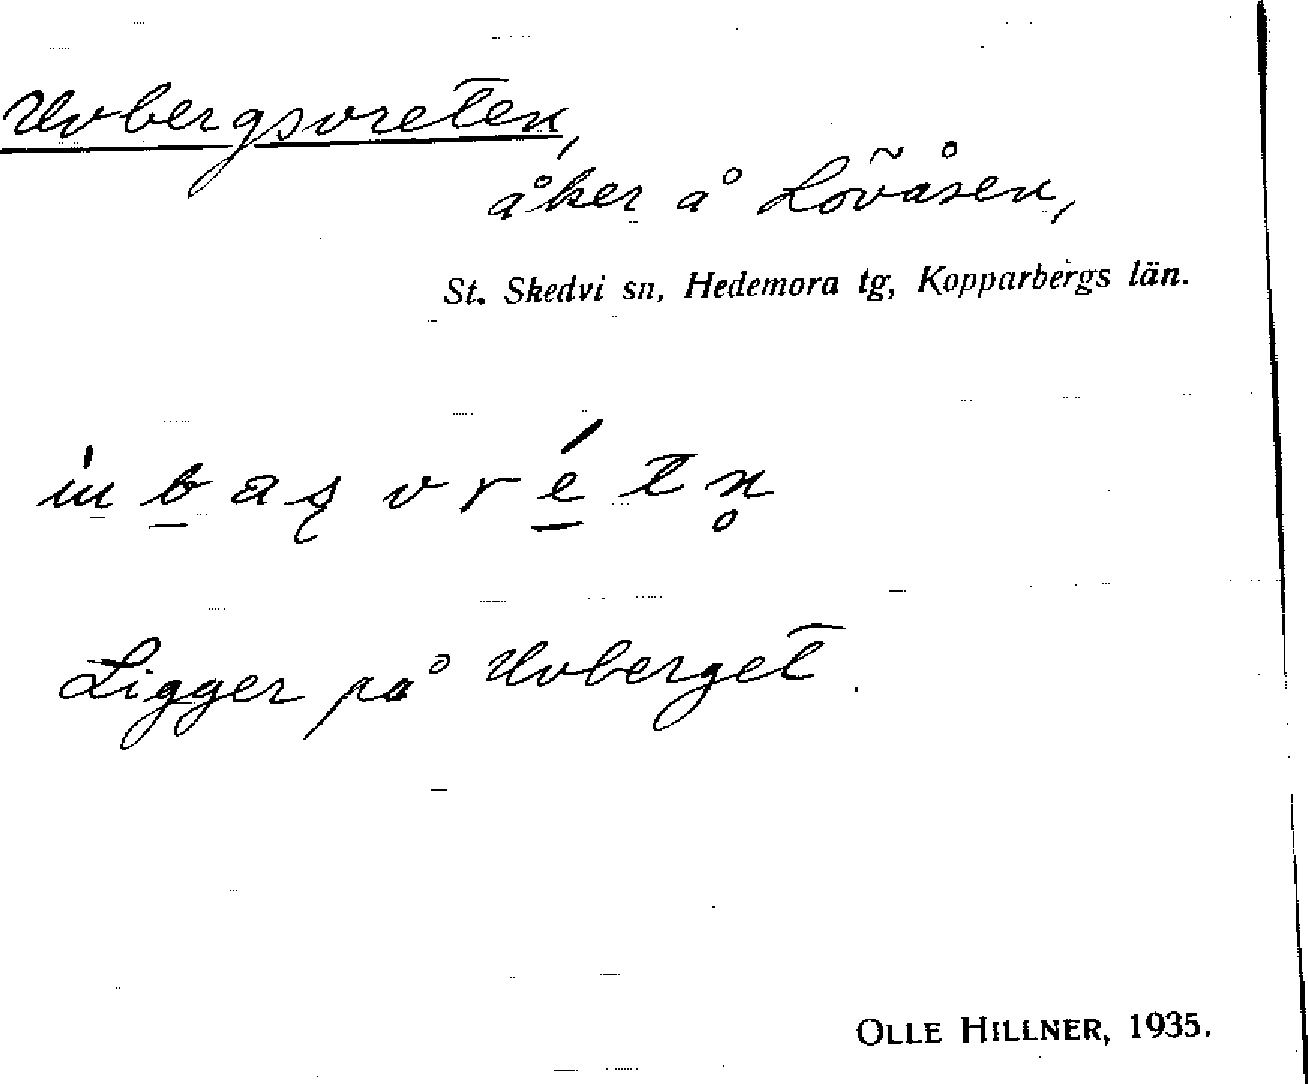 Uvbergsvreten,
åker å Lövåsen,
St. Skedvi sn, Hedemora tg, Kopparbergs län.
Ligger på Uvberget.
OLLE HILLNER, 1935.